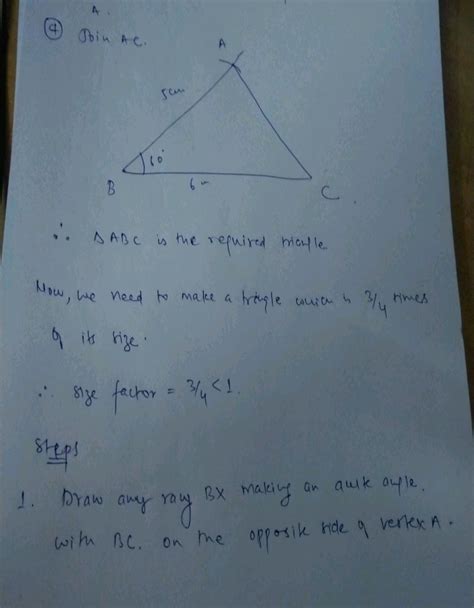 A.
④ Join AC.
A
5cm
60°
B
6
C.
∴ ΔABC is the required triangle
Now, we need to make a triangle which is 3/4 times
of its size.
∴ size factor = 3/4 < 1.
Steps
1. Draw any ray BX making an acute angle.
with BC. on the opposite side of vertex A.